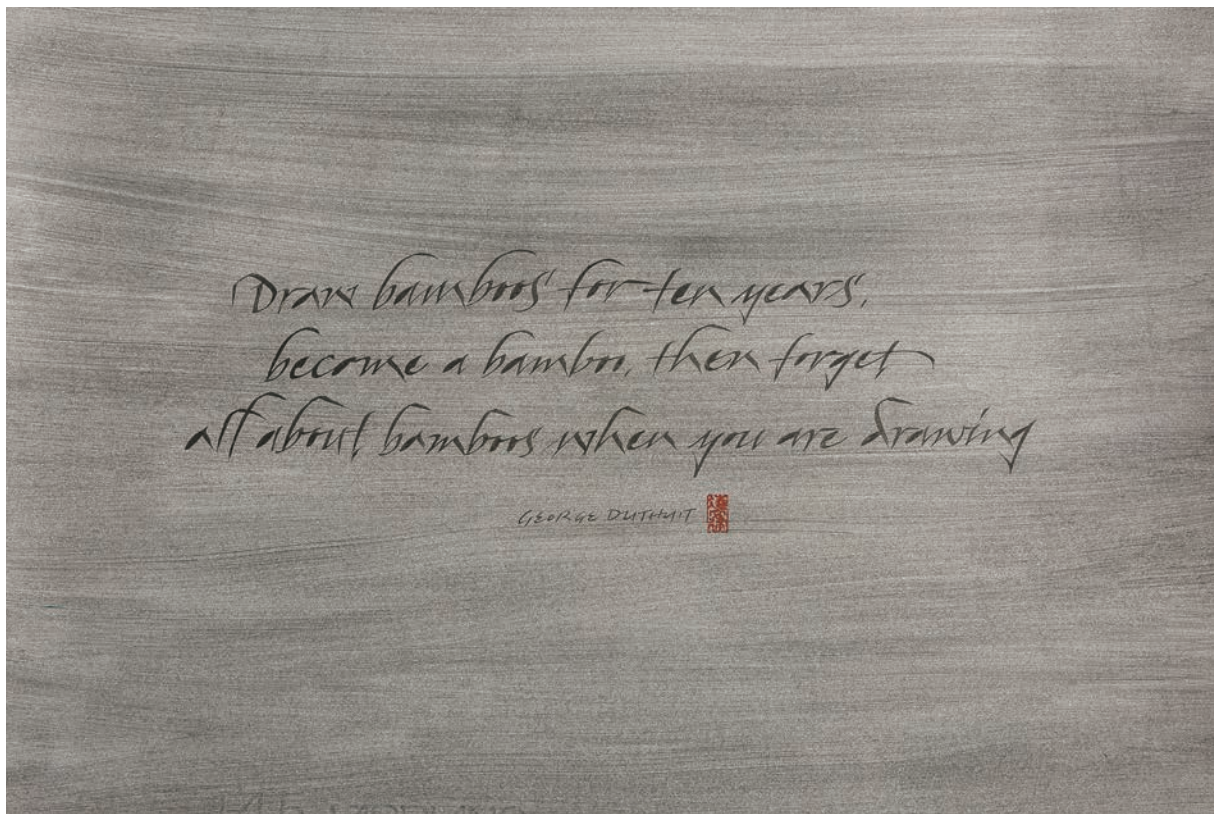 Draw bamboos for ten years,
become a bamboo, then forget
all about bamboos when you are drawing
GEORGE DUTHUIT